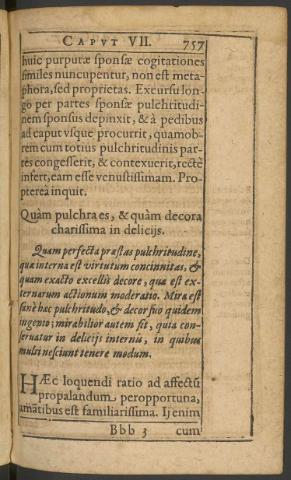 CAPVT VII. 757
huic purpuræ sponsæ cogitationes
similes nuncupentur, non est meta-
phora, sed proprietas. Excursu lon-
go per partes sponsæ pulchritudi-
nem sponsus depinxit, & à pedibus
ad caput vsque procurrit, quamob-
rem cum totius pulchritudinis par-
tes congesserit, & contexuerit, rectè
infert, eam esse venustissimam. Pro-
ptereà inquit.
Quàm pulchra es, & quàm decora
charissima in delicijs.
Quam perfecta præstas pulchritudine,
quæ interna est virtutum concinnitas, &
quam exacto excellis decore, quæ est ex-
ternarum actionum moderatio. Mira est
sanè hæc pulchritudo, & decor suo quidem
ingenio; mirabilior autem sit, quia con-
seruatur in delicijs internis, in quibus
multi nesciunt tenere modum.
HÆc loquendi ratio ad affectũ
propalandum peropportuna,
amãtibus est familiarissima. Ij enim
Bbb 3 cum